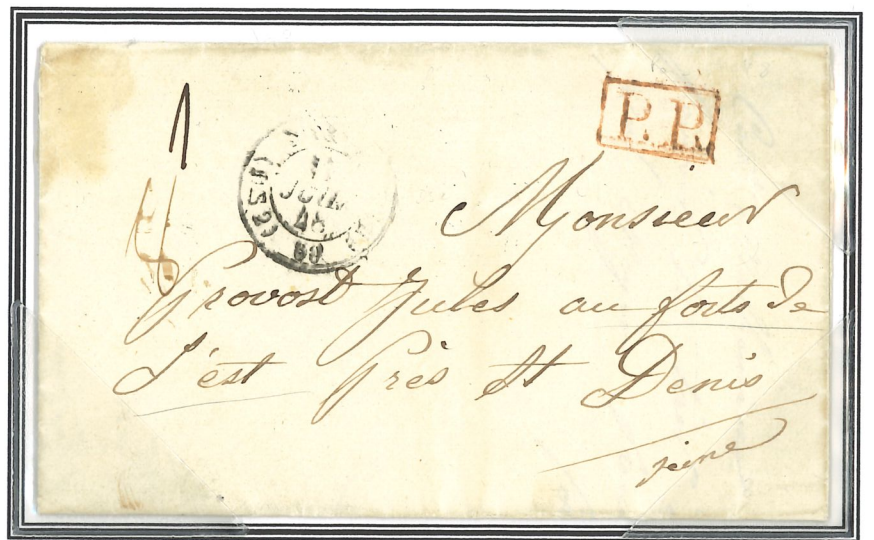 1
P.P.
JUIN
48
60
Monsieur
Provost Jules au forts de
l'est Près St Denis
seine